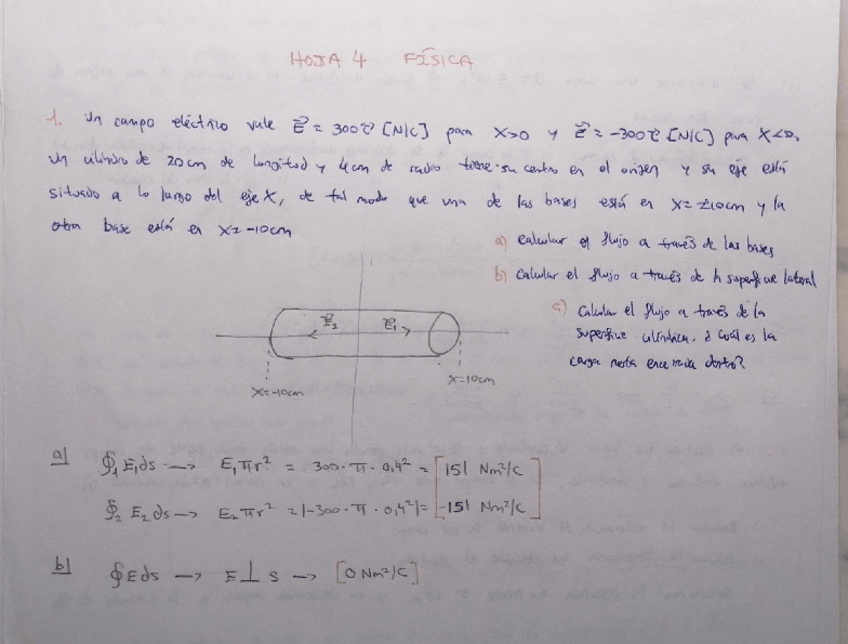 HOJA 4 FÍSICA
1. Un campo eléctrico vale E⃗ = 300 i⃗ [N/C] para X>0 y E⃗ = -300 i⃗ [N/C] para X<0.
Un cilindro de 20cm de longitud y 4cm de radio tiene su centro en el origen y su eje está
situado a lo largo del eje X, de tal modo que una de las bases está en X= ±10cm y la
otra base está en X= -10cm
a) Calcular el flujo a través de las bases
b) Calcular el flujo a través de la superficie lateral
c) Calcular el flujo a través de la
superficie cilíndrica. ¿Cuál es la
carga neta encerrada dentro?
E⃗₂ E⃗₁
X=-10cm
X=10cm
a) ∮₁ E₁ds → E₁πr² = 300·π·0,4² = [151 Nm²/C]
∮₂ E₂ds → E₂πr² = |-300·π·0,4²| = [-151 Nm²/C]
b) ∮Eds → E⊥s → [0 Nm²/C]